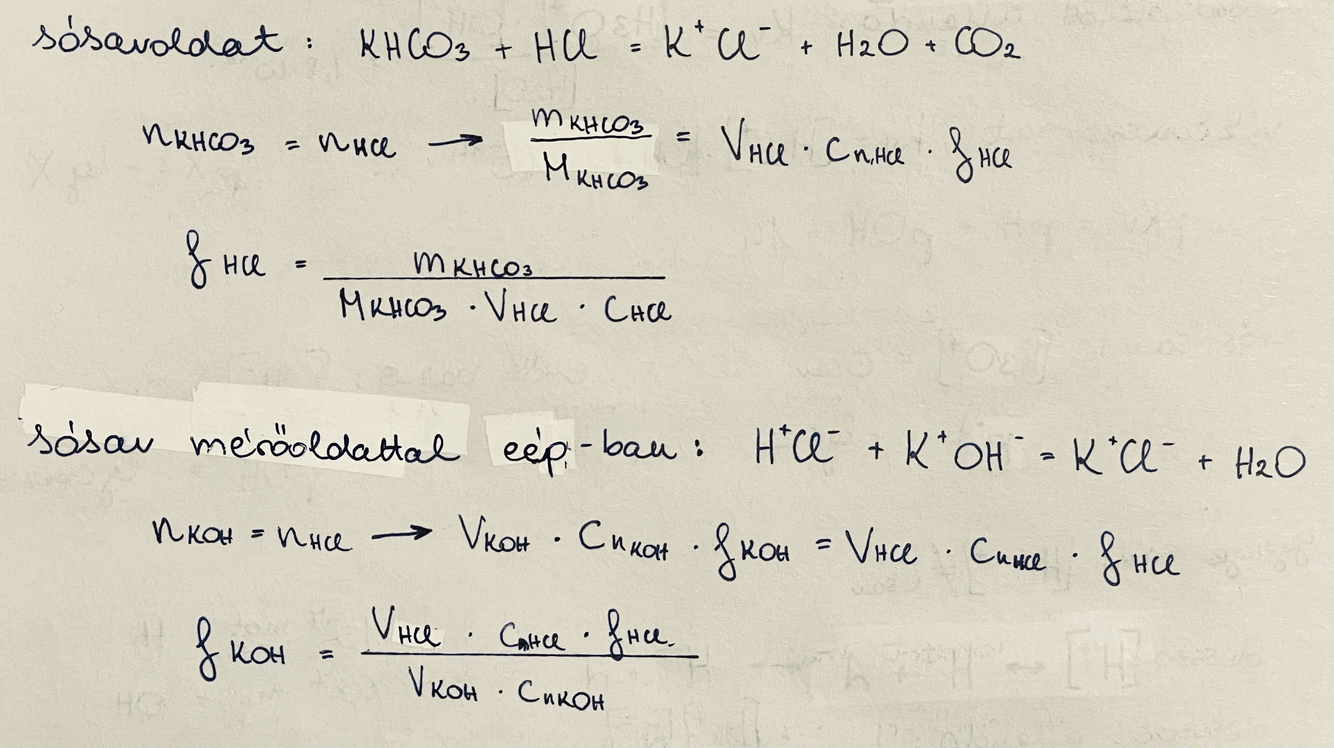 sósavoldat : KHCO3 + HCl = K⁺Cl⁻ + H2O + CO2
nKHCO3 = nHCl → mKHCO3 / MKHCO3 = VHCl · Cn,HCl · fHCl
fHCl = mKHCO3 / MKHCO3 · VHCl · CHCl
sósav mérőoldattal eép-ban : H⁺Cl⁻ + K⁺OH⁻ = K⁺Cl⁻ + H2O
nKOH = nHCl → VKOH · CnKOH · fKOH = VHCl · CnHCl · fHCl
fKOH = VHCl · CnHCl · fHCl / VKOH · CnKOH